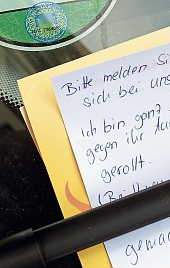 Bitte melden Si
sich bei uns
Ich bin ganz
gegen ihr Au
gerollt.
gema